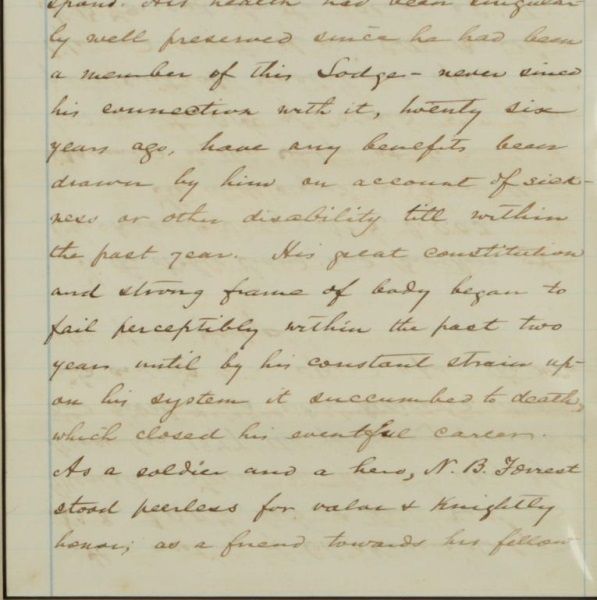 spond. His health had been singular-
ly well preserved since he had been
a member of this Lodge - never since
his connection with it, twenty six
years ago, have any benefits been
drawn by him on account of sick-
ness or other disability till within
the past year. His great constitution
and strong frame of body began to
fail perceptibly within the past two
years until by his constant strain up-
on his system it succumbed to death,
which closed his eventful career.
As a soldier and a hero, N. B. Forrest
stood peerless for valor & Knightly
honor; as a friend towards his fellow